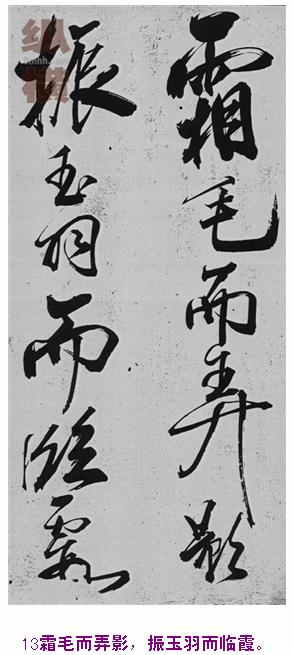 霜毛而弄影
振玉羽而臨霞
13霜毛而弄影，振玉羽而临霞。